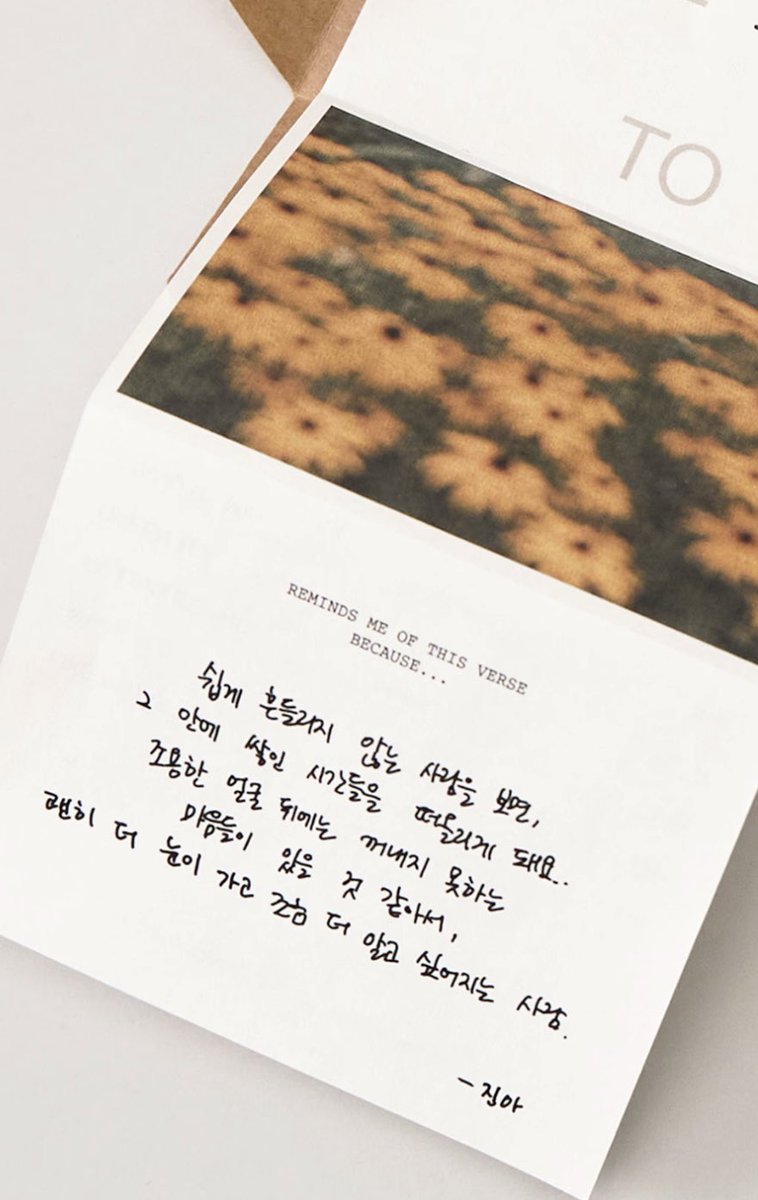 TO
REMINDS ME OF THIS VERSE
BECAUSE...
쉽게 흔들리지 않는 사람을 보면,
그 안에 쌓인 시간들을 떠올리게 돼요..
조용한 얼굴 뒤에는 꺼내지 못하는
마음들이 있을 것 같아서,
괜히 더 눈이 가고 조금 더 알고 싶어지는 사람.
- 진아